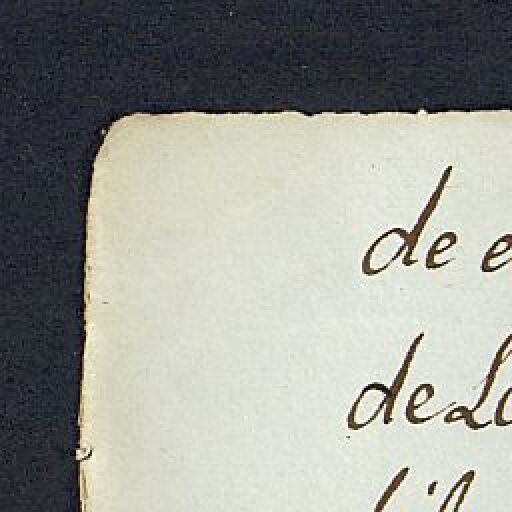 de e
de Lo